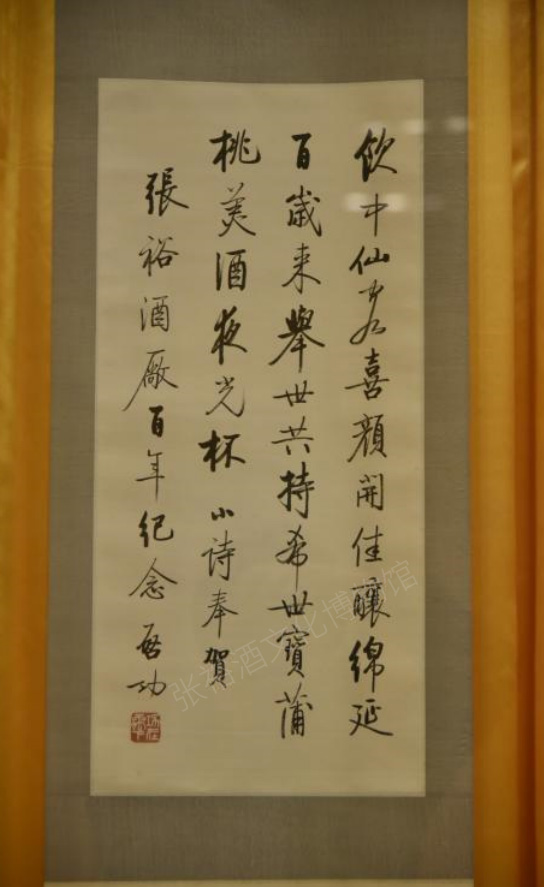 飲中仙喜顏開佳釀綿延
百歲來舉世共持希世寶蒲
桃美酒夜光杯 小詩奉賀
張裕酒廠百年紀念 啓功
张裕酒文化博物馆